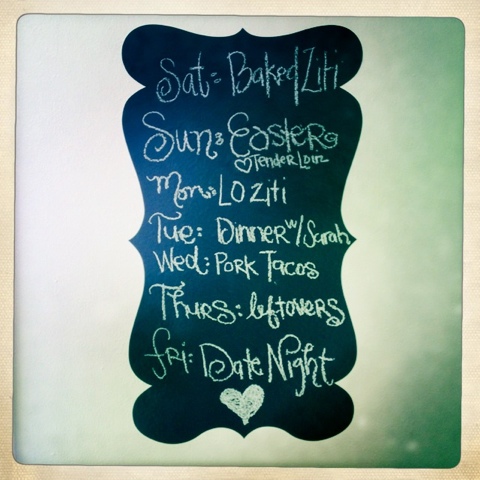 Sat: Baked Ziti
Sun: Easter
Tenderloin
Mon: LO Ziti
Tue: Dinner w/ Sarah
Wed: Pork Tacos
Thurs: leftovers
Fri: Date Night